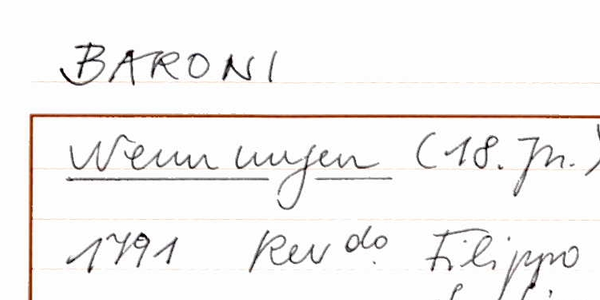 BARONI
Nennungen (18. Jh.)
1791 Rev do. Filippo